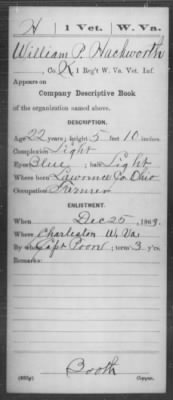 H 1 Vet. W. Va.
William P. Hackworth
, Co. K 1 Reg't W. Va. Vet. Inf.
Appears on
Company Descriptive Book
of the organization named above.
DESCRIPTION.
Age 22 years; height 5 feet 10 inches.
Complexion Light
Eyes Blue; hair Light
Where born Lawrence Co. Ohio
Occupation Farmer
ENLISTMENT.
When Dec 25, 1863.
Where Charleston W. Va.
By whom Capt Poore; term 3 y'rs.
Remarks:
Booth
Copyist.